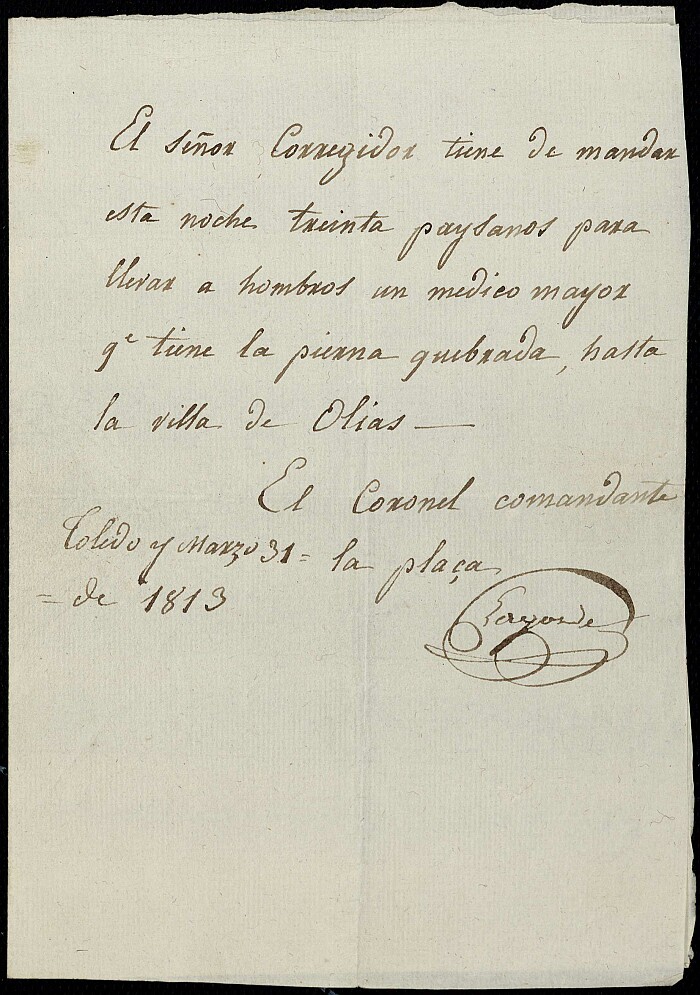 El señor Corregidor tiene de mandar
esta noche treinta paysanos para
llevar a hombros un medico mayor
qe tiene la pierna quebrada, hasta
la villa de Olias —
El Coronel comandante
Toledo y Marzo 31 = la plaça
= de 1813